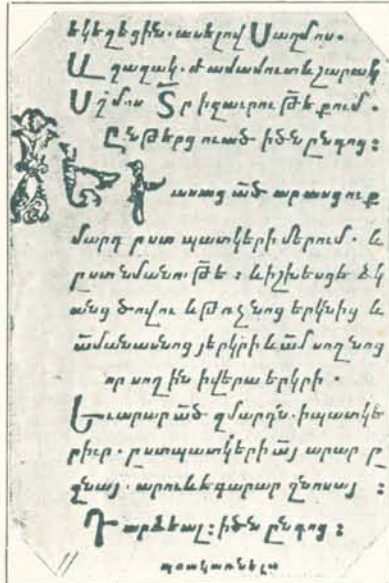 եկեղեցին. ասելով Սաղմոս.
Աղաղակ.
Սղմոս Տր իզաւրութե քում.
Ընթերցուած ի ծն ընդոց :
Եւ ասաց ած արասցուք
մարդ ըստ պատկերի մերում. և
ըստ նմանութե : և իշխեսցե ձկ
անց ծովու և թռչնոց երկնից և
անասնոց յերկրի և ամ սողնոց
որ սողին ի վերա երկրի.
Եւ արար ած զմարդն. ի պատկե
րիւր. ըստ պատկերի այ արար զ
նայ. արու և էգ արար զնոսայ :
Դարձեալ : ի ծն ընդոց :